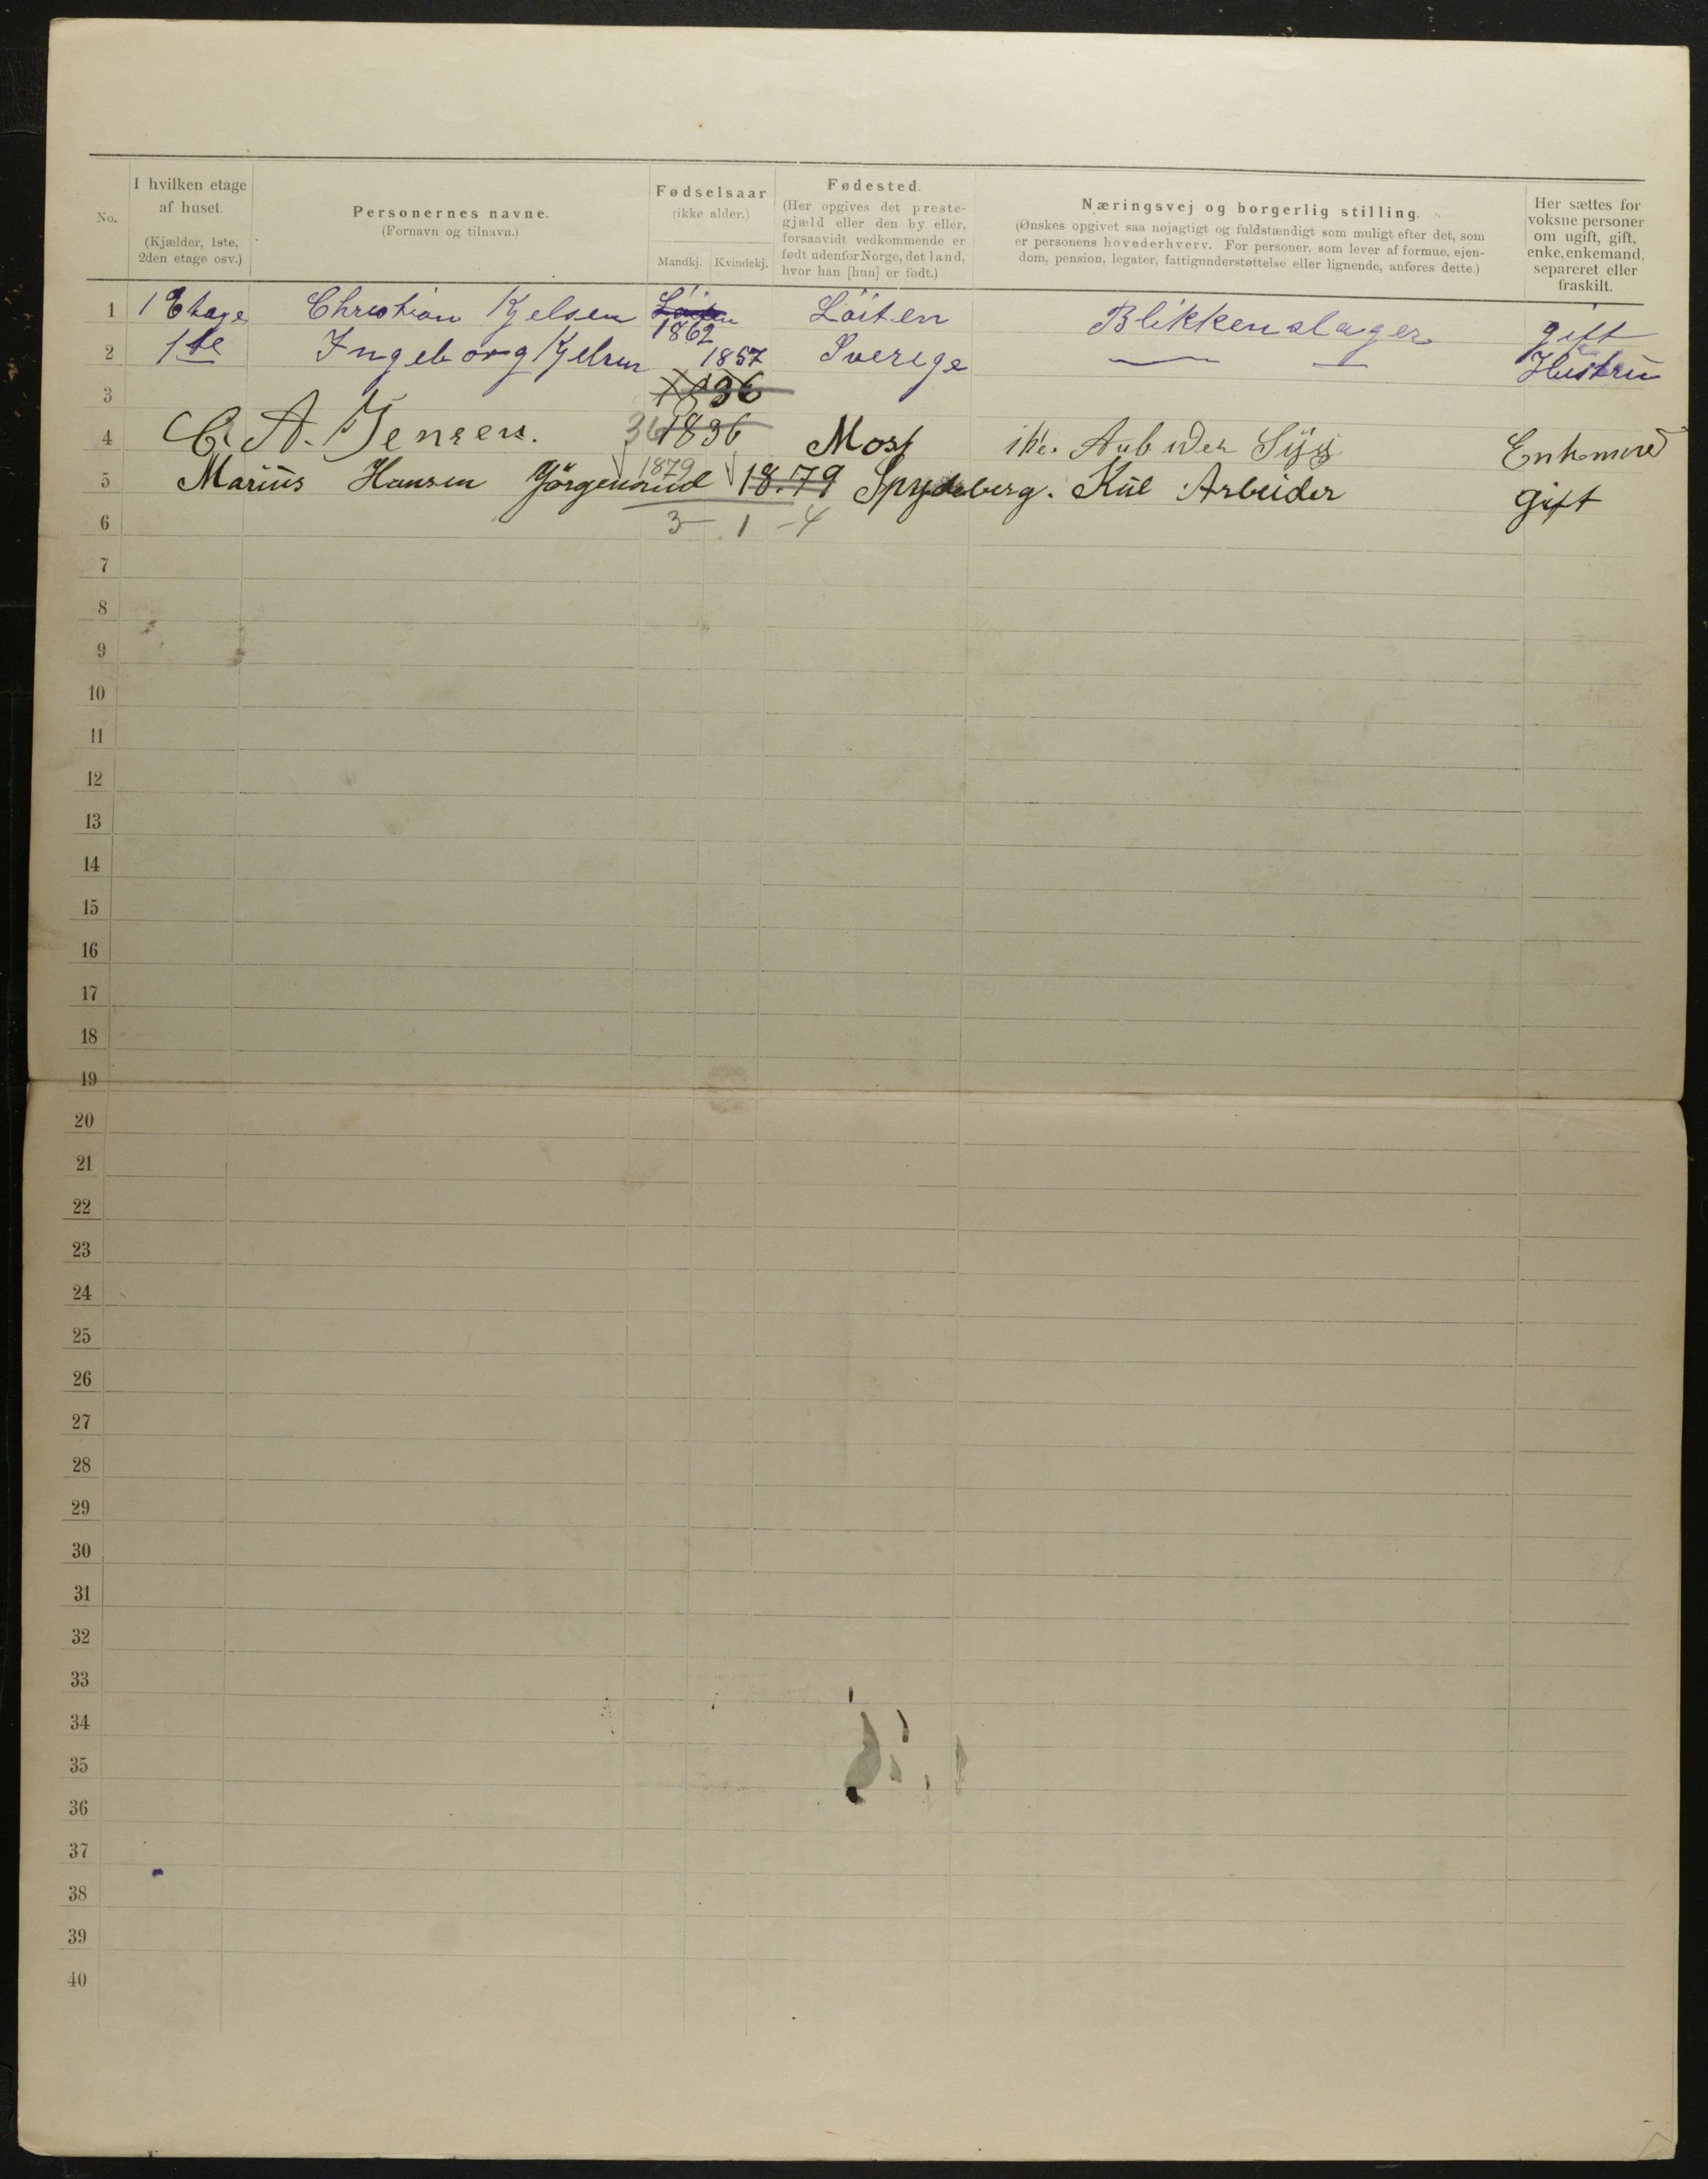 No.
I hvilken etage
af huset.
(Kjælder, 1ste,
2den etage osv.)
Personernes navne.
(Fornavn og tilnavn.)
Fødselsaar
(ikke alder.)
Mandkj. Kvindekj.
Fødested.
(Her opgives det preste-
gjæld eller den by eller,
forsaavidt vedkommende er
født udenfor Norge, det land,
hvor han [hun] er født.)
Næringsvej og borgerlig stilling.
(Ønskes opgivet saa nøjagtigt og fuldstændigt som muligt efter det, som
er personens hovederhverv. For personer, som lever af formue, ejen-
dom, pension, legater, fattigunderstøttelse eller lignende, anføres dette.)
Her sættes for
voksne personer
om ugift, gift,
enke, enkemand,
separeret eller
fraskilt.
1 1 Etage Christian Kjelsen Löiten 1862 Löiten Blikkenslager gift
2 1te Ingeborg Kjelsen 1857 Sverige — — Hustru
3 1836
4 C. A. Jensen. 36 1836 Moss ike. Syg Enkemand
5 Marius Hansen Jörgensrud 1879 18.79 Spydeberg. Kul Arbeider gift
6 3 - 1 - 4
7
8
9
10
11
12
13
14
15
16
17
18
19
20
21
22
23
24
25
26
27
28
29
30
31
32
33
34
35
36
37
38
39
40